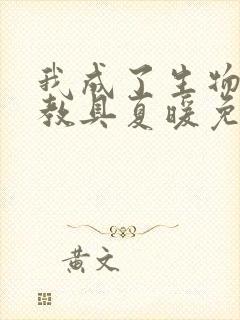 我成了生物
教具夏暖免
黄文